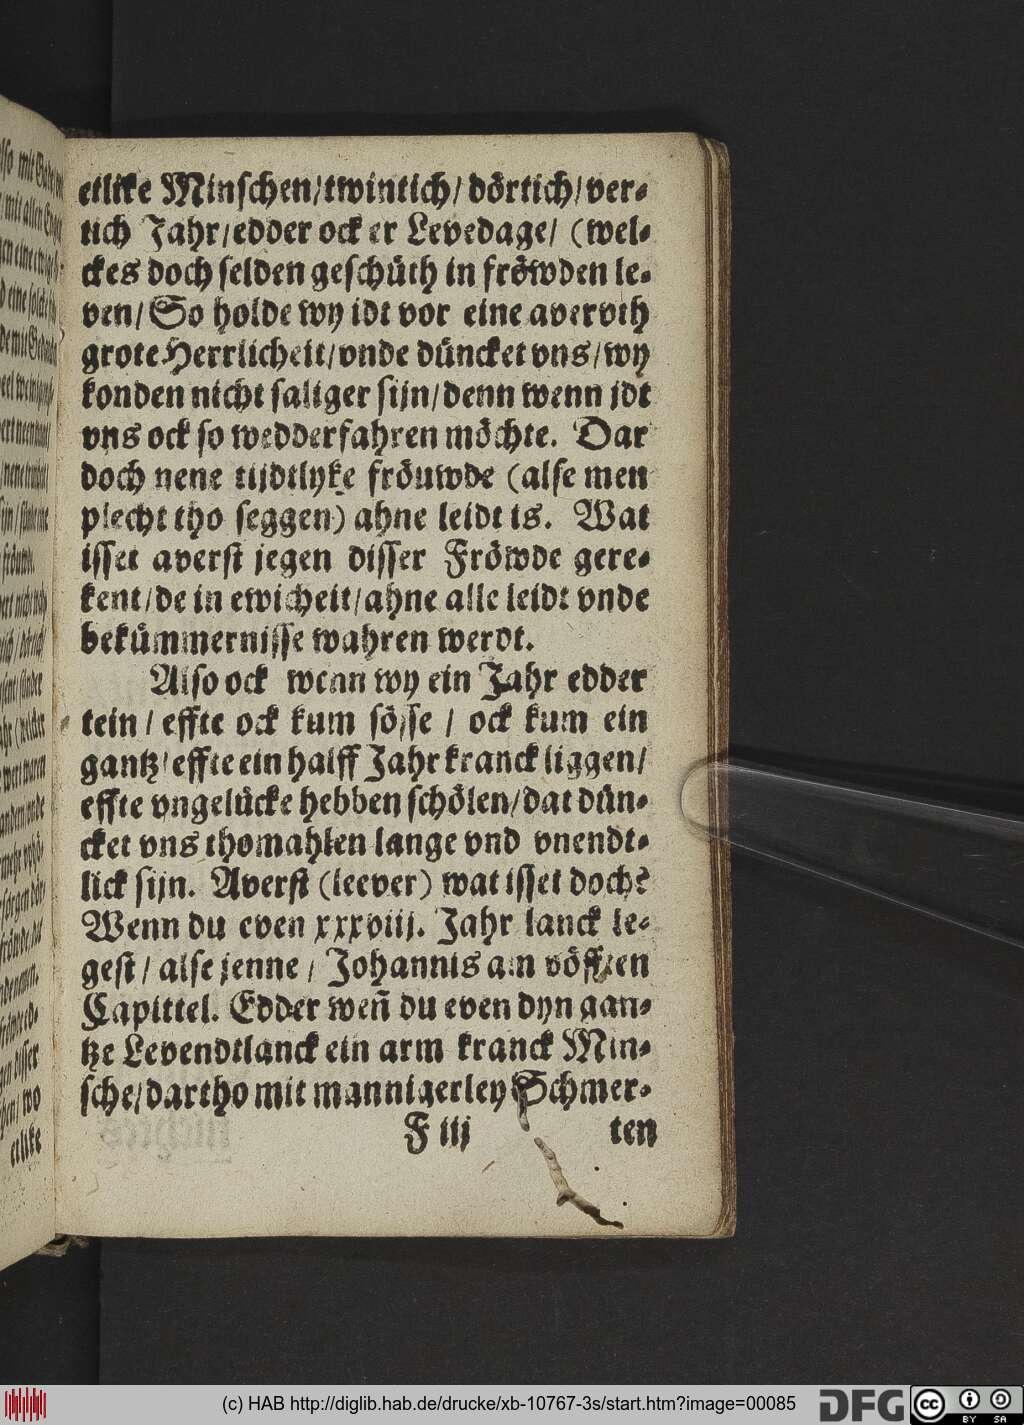 etlike Minschen/twintich/dörtich/ver-
tich Jahr/edder ock er Levedage/ (wel-
ckes doch selden geschüth in fröwden le-
ven/So holde wy idt vor eine averuth
grote Herrlicheit/vnde düncket vns/wy
konden nicht saliger sijn/denn wenn jdt
vns ock so wedderfahren möchte. Dar
doch nene tijdtlyke fröuwde (alse men
plecht tho seggen) ahne leidt is. Wat
isset averst jegen disser Fröwde gere-
kent/de in ewicheit/ahne alle leidt vnde
bekümmernisse wahren werdt.
Also ock wenn wy ein Jahr edder
tein/effte ock kum sösse/ ock kum ein
gantz/effte ein halff Jahr kranck liggen/
effte vngelücke hebben schölen/dat dün-
cket vns thomahlen lange vnd vnendt-
lick sijn. Averst (leever) wat isset doch?
Wenn du even xxxviij. Jahr lanck le-
gest/alse jenne/ Johannis am vöfften
Capittel. Edder weñ du even dyn gan-
tze Levendtlanck ein arm kranck Min-
sche/dartho mit mannigerley Schmer-
F iij ten
(c) HAB http://diglib.hab.de/drucke/xb-10767-3s/start.htm?image=00085
DFG
cc
BY SA